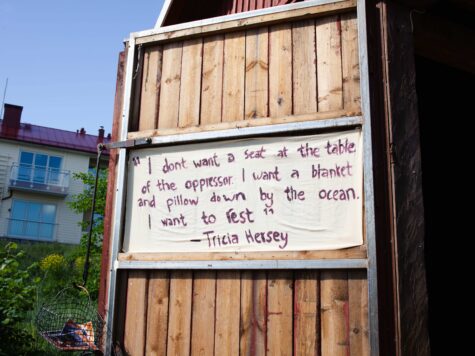 " I dont want a seat at the table
of the oppressor. I want a blanket
and pillow down by the ocean.
I want to rest "
- Tricia Hersey